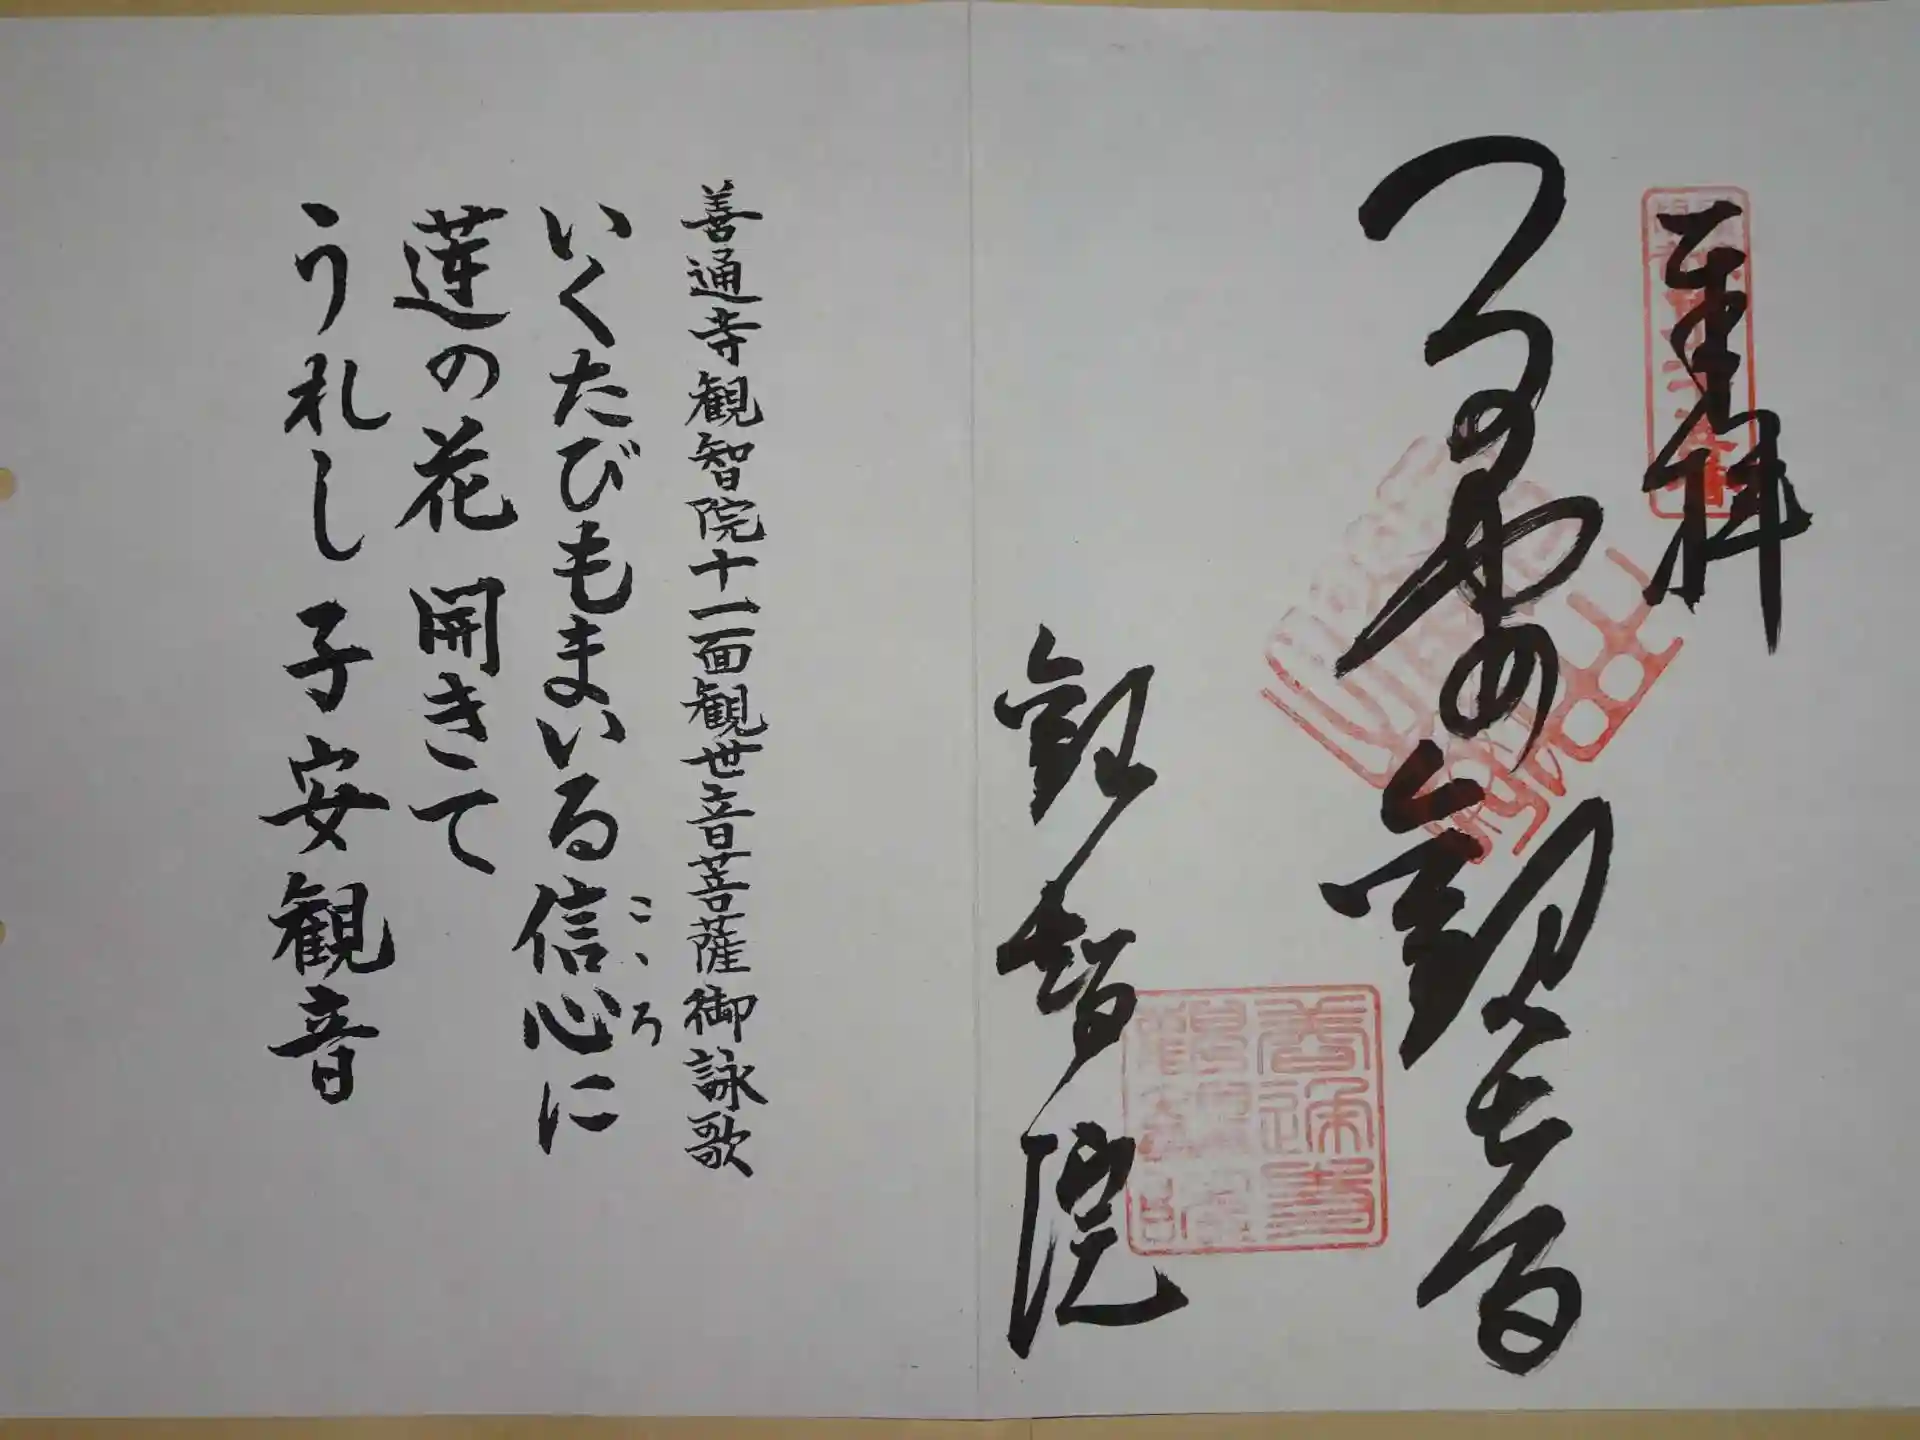 奉拝
子安観世音
観智院
善通寺観智院十一面観世音菩薩御詠歌
いくたびもまいる信心に
こゝろ
蓮の花 開きて
うれし 子安観音